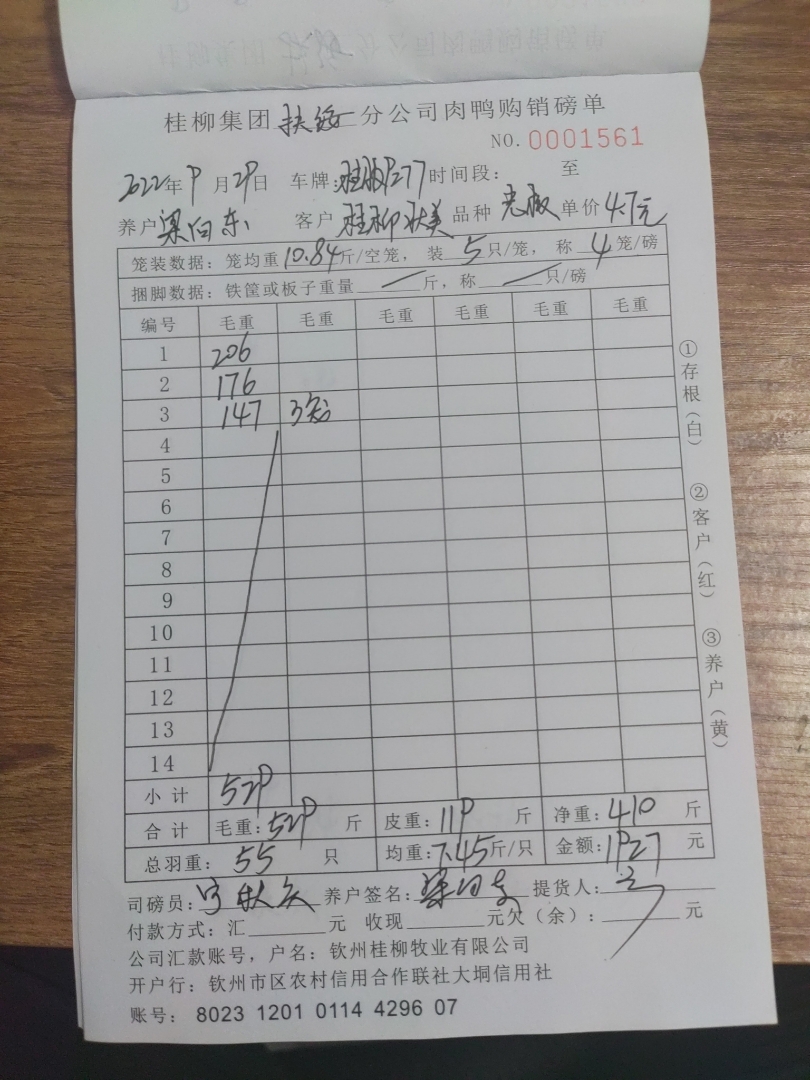 桂柳集团扶绥分公司肉鸭购销磅单
NO. 0001561
2022年9月29日 车牌: 时间段: 至
养户 客户 桂柳 品种 单价 4.7元
笼装数据: 笼均重10.84斤/空笼, 装5只/笼, 称4笼/磅
捆脚数据: 铁筐或板子重量 斤, 称 只/磅
编号 毛重 毛重 毛重 毛重 毛重 毛重
1 206
2 176
3 147 3笼
4
5
6
7
8
9
10
11
12
13
14
小计 529
合计 毛重: 529 斤 皮重: 119 斤 净重: 410 斤
总羽重: 55 只 均重: 7.45斤/只 金额: 1927 元
司磅员: 养户签名: 提货人:
付款方式: 汇 元 收现 元欠(余): 元
公司汇款账号, 户名: 钦州桂柳牧业有限公司
开户行: 钦州市区农村信用合作联社大垌信用社
账号: 8023 1201 0114 4296 07
①存根(白)
②客户(红)
③养户(黄)